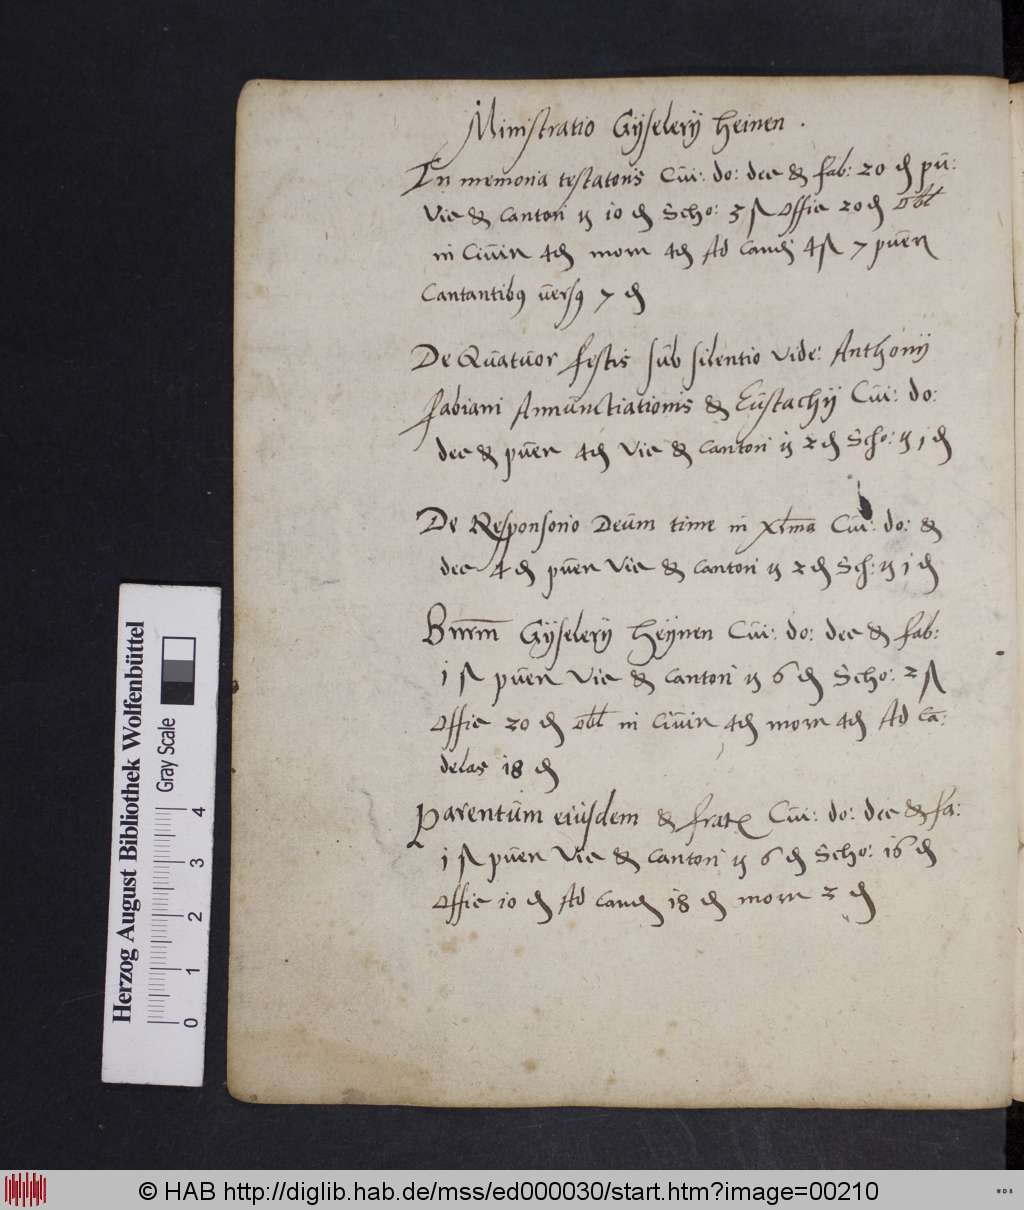 Ministratio Gÿselerÿ Heinen .
In memoria testatoris Cui: do: dec & fab: 20 ₰ pu:
Vic & cantori ij 10 ₰ Scho: 3 ß offic 20 ₰ obl
in Ciuin 4 ₰ morn 4 ₰ Ad cand 4 ß 7 puer
Cantantibus versus 7 ₰
De Quatuor festis sub silentio vide: Anthonij
fabiani Annunctiationis & Eustachij Cui: do:
dec & puer 4 ₰ Vic & cantori ij 2 ₰ Scho: ij 1 ₰
De Responsorio Deum time in xlma Cui: do: &
dec 4 ₰ puer Vic & cantori ij 2 ₰ Sch: ij 1 ₰
Gÿselerÿ Heÿnen Cui: do: dec & fab:
1 ß puer Vic & cantori ij 6 ₰ Scho: 2 ß
offic 20 ₰ obl in Ciuin 4 ₰ morn 4 ₰ Ad ca:
delas 18 ₰
Parentum eiusdem & fratr Cui: do: dec & fa:
1 ß puer Vic & cantori ij 6 ₰ Scho: 16 ₰
offic 10 ₰ Ad cand 18 ₰ morn 2 ₰
Herzog August Bibliothek Wolfenbüttel
Gray Scale
0 1 2 3 4
© HAB http://diglib.hab.de/mss/ed000030/start.htm?image=00210